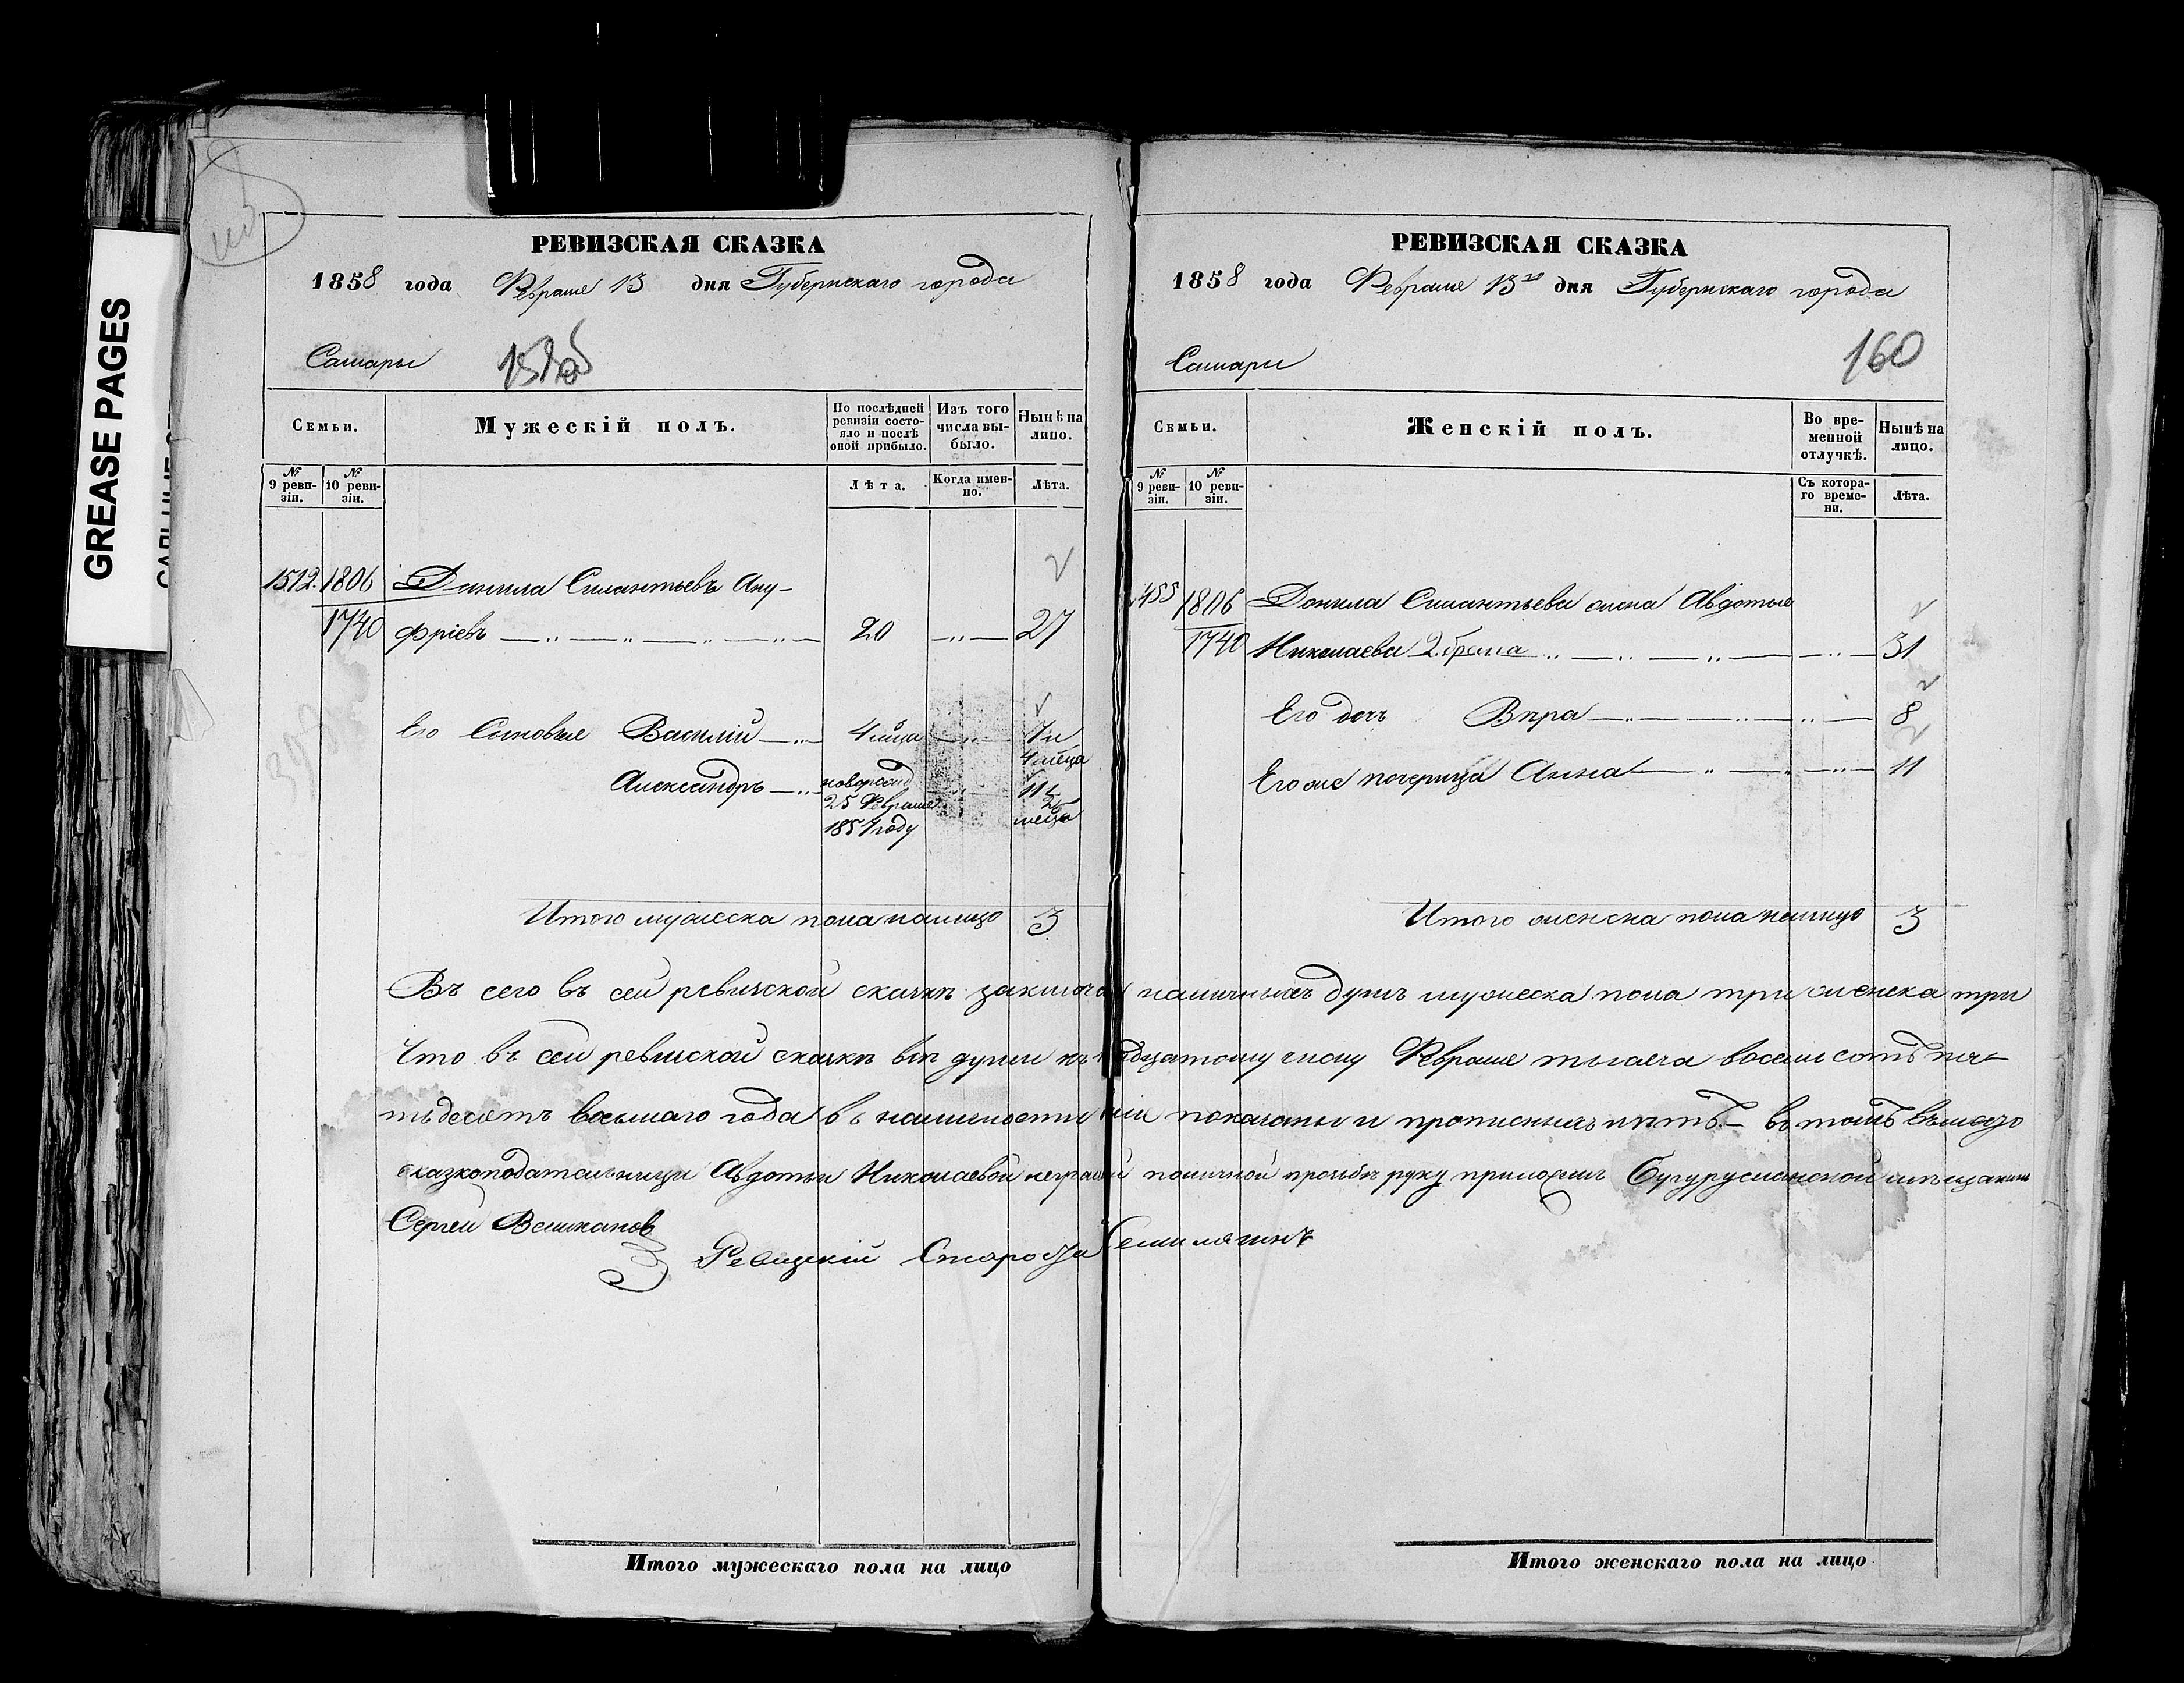 GREASE PAGES
РЕВИЗСКАЯ СКАЗКА
1858 года Февраля 13 дня Губернскаго города
Самары
Семьи.
Мужескій полъ.
По послѣдней ревизіи состояло и послѣ оной прибыло.
Изъ того числа выбыло.
Нынѣ на лицо.
№ 9 ревизіи.
№ 10 ревизіи.
Лѣта.
Когда именно.
Лѣта.
1512. 1806 Данила Силантьевъ Ану-
1740 фріевъ 20 27
Его Сыновья Василій 4 мѣца 7 и
4 мѣца
Александръ новорожд 11 и
25 Февраля
1857 году мѣцъ
Итого мужеска пола налицо 3
РЕВИЗСКАЯ СКАЗКА
1858 года Февраля 13го дня Губернскаго города
Самары
160
Семьи.
Женскій полъ.
Во временной отлучкѣ.
Нынѣ на лицо.
№ 9 ревизіи.
№ 10 ревизіи.
Съ котораго времени.
Лѣта.
1806 Данила Силантьева жена Авдотья
1740 Николаева 2. брака 31
Его дочь Вѣра 8
Его же пачерица Анна 11
Итого женска пола налицо 3
Въ сего въ сей ревизской сказкѣ наличныхъ душъ мужеска пола три женска три
Что въ сей ревизской сказкѣ всѣ души къ числу Февраля тысяча восемь сотъ пя-
тьдесятъ восьмаго года въ наличности показаны и прописныхъ нѣтъ – въ томъ вмѣсто
сказкоподательницы Авдотьи Николаевой неграмотной по личной прозьбѣ руку приложилъ Бугурусланской мѣщанинъ
Сергей
Ревизскій Староста
Итого мужескаго пола на лицо
Итого женскаго пола на лицо